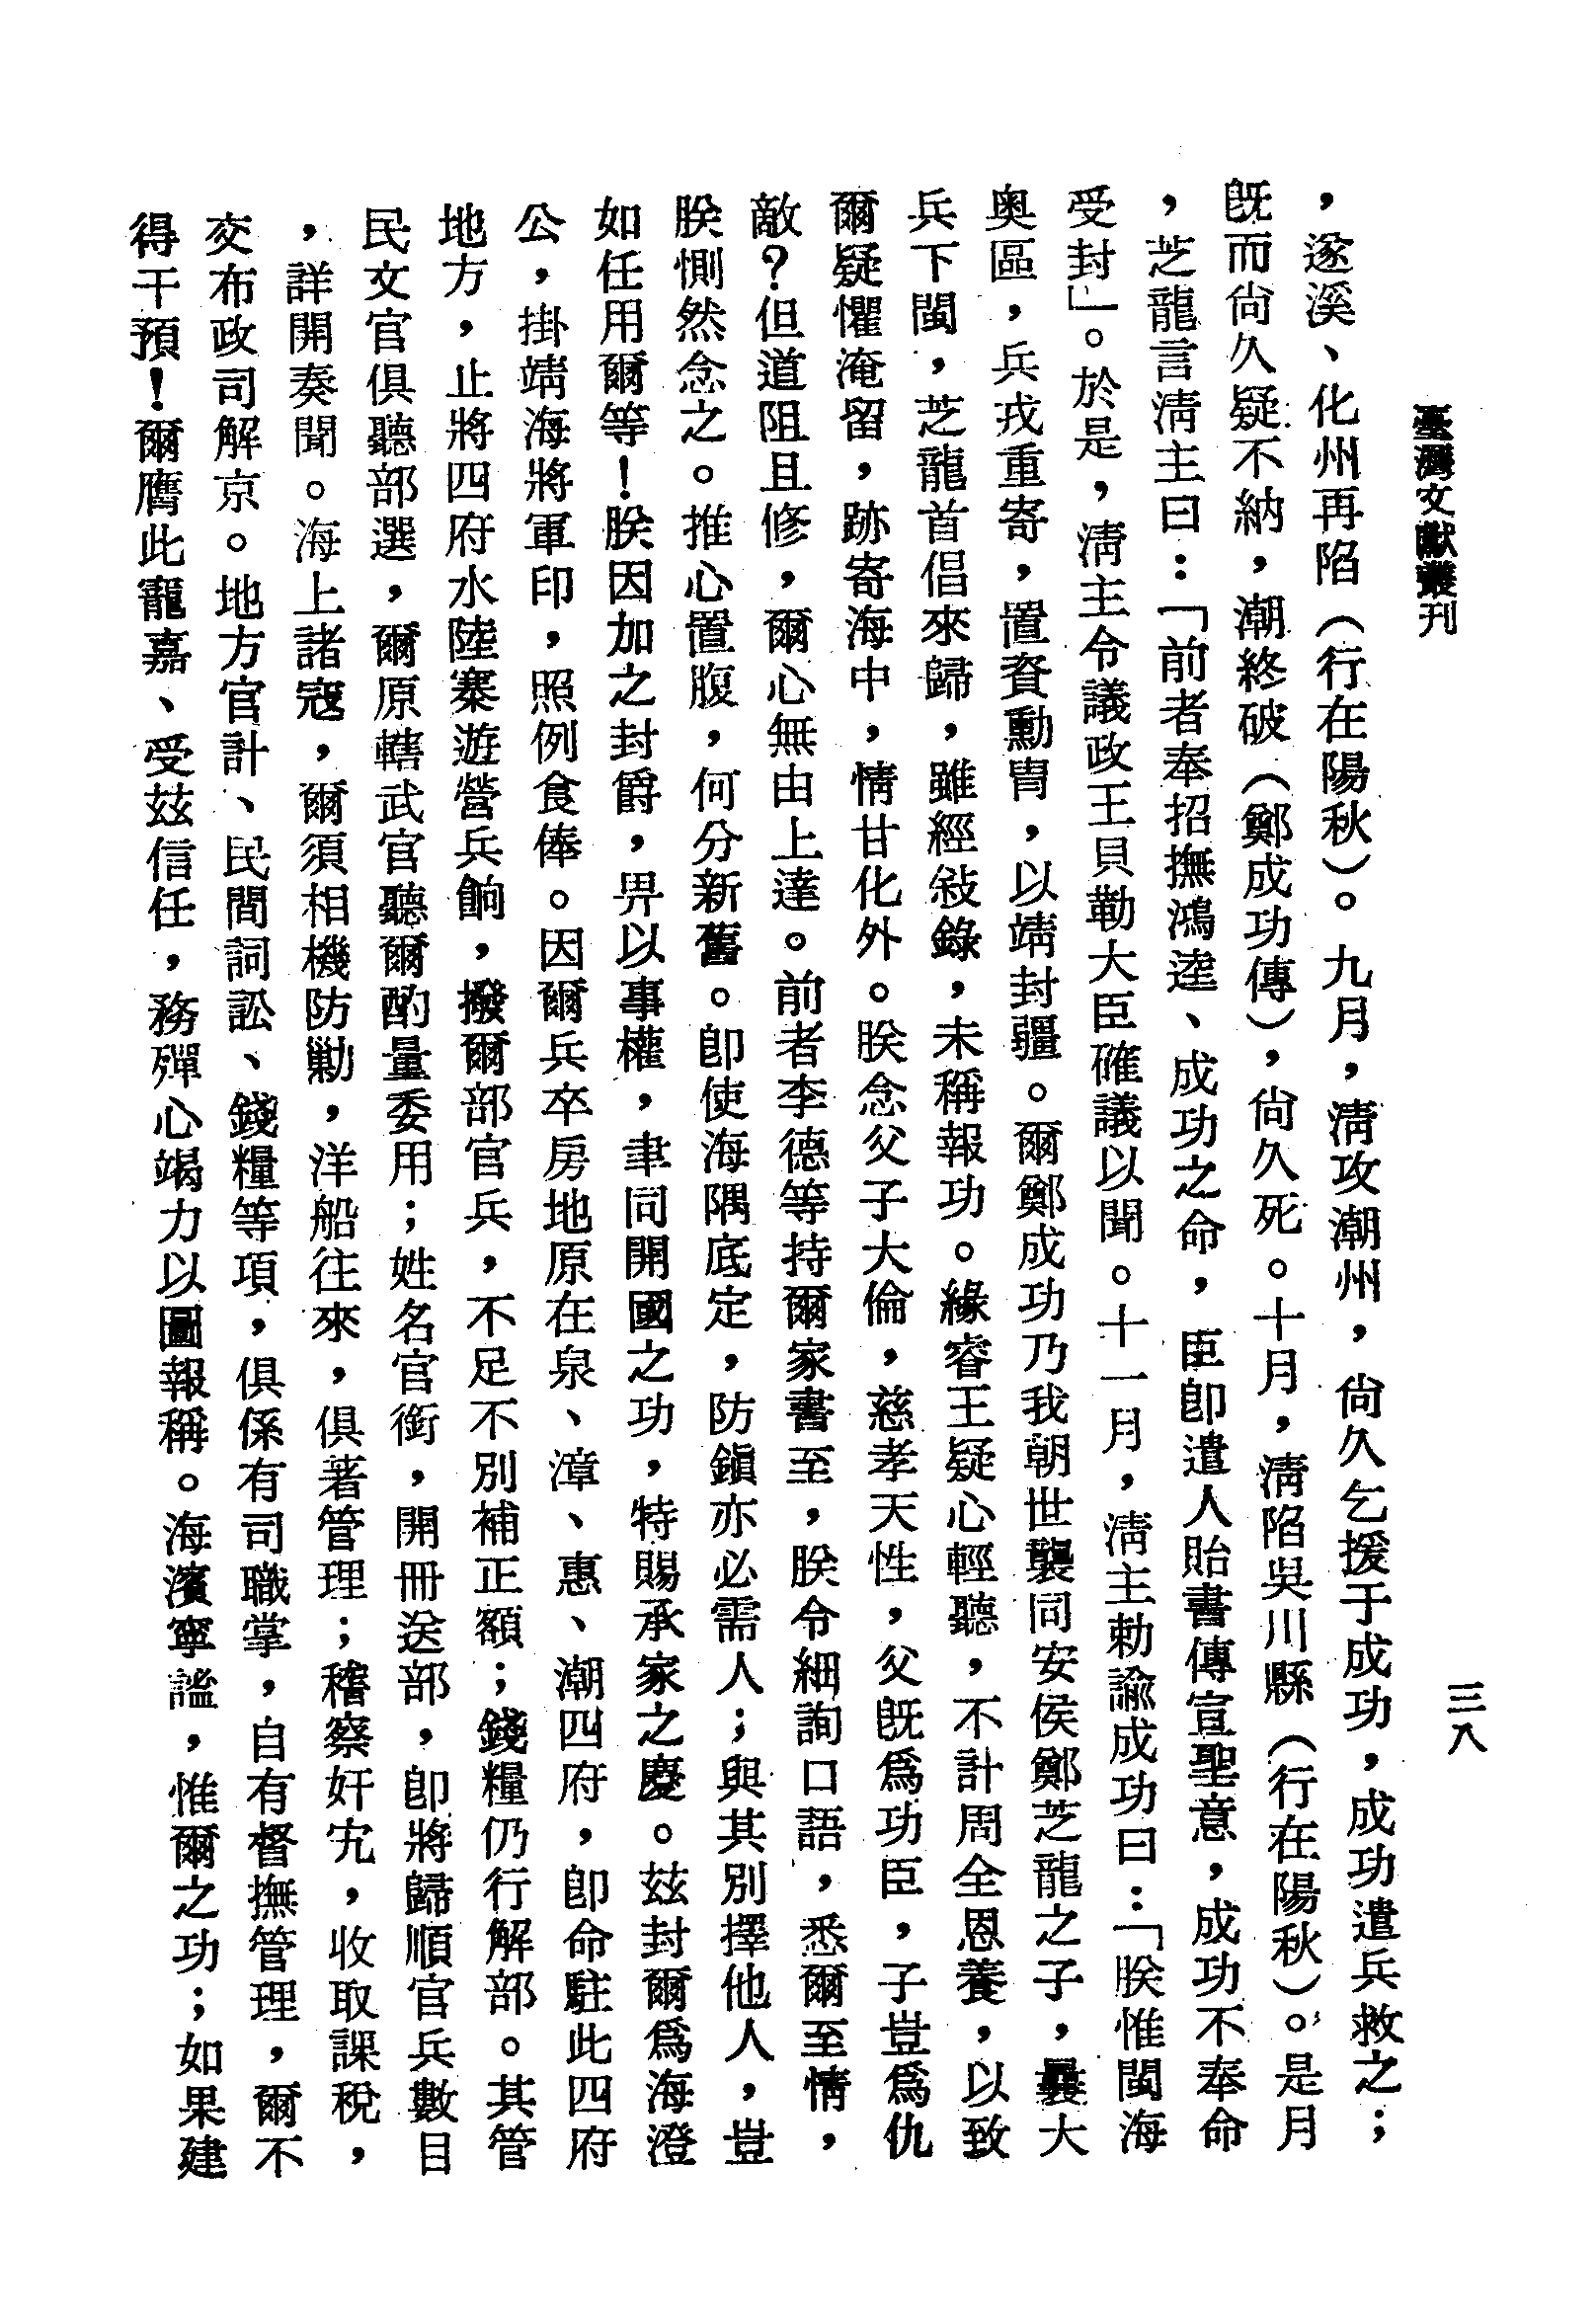 臺灣文獻叢刊
三八
，遂溪、化州再陷（行在陽秋）。九月，淸攻潮州，尙久乞援于成功，成功遣兵救之；
旣而尙久疑不納，潮終破（鄭成功傳），尙久死。十月，淸陷吳川縣（行在陽秋）。是月
，芝龍言淸主曰：「前者奉招撫鴻逵、成功之命，臣卽遣人貽書傳宣聖意，成功不奉命
受封」。於是，淸主令議政王貝勒大臣確議以聞。十一月，淸主勅諭成功曰：「朕惟閩海
奥區，兵戎重寄，置資勳冑，以靖封疆。爾鄭成功乃我朝世襲同安侯鄭芝龍之子，曩大
兵下閩，芝龍首倡來歸，雖經敍錄，未稱報功。緣睿王疑心輕聽，不計周全恩養，以致
爾疑懼淹留，跡寄海中，情甘化外。朕念父子大倫，慈孝天性，父旣爲功臣，子豈爲仇
敵？但道阻且修，爾心無由上達。前者李德等持爾家書至，朕令細詢口語，悉爾至情，
朕惻然念之。推心置腹，何分新舊。卽使海隅底定，防鎭亦必需人；與其別擇他人，豈
如任用爾等！朕因加之封爵，畀以事權，聿同開國之功，特賜承家之慶。玆封爾爲海澄
公，掛靖海將軍印，照例食俸。因爾兵卒房地原在泉、漳、惠、潮四府，卽命駐此四府
地方，止將四府水陸寨遊營兵餉，撥爾部官兵，不足不別補正額；錢糧仍行解部。其管
民文官俱聽部選，爾原轄武官聽爾酌量委用；姓名官銜，開冊送部，卽將歸順官兵數目
，詳開奏聞。海上諸寇，爾須相機防勦，洋船往來，俱著管理；稽察奸宄，收取課稅，
交布政司解京。地方官計、民間詞訟、錢糧等項，俱係有司職掌，自有督撫管理，爾不
得干預！爾膺此寵嘉、受玆信任，務殫心竭力以圖報稱。海濱寧謐，惟爾之功；如果建